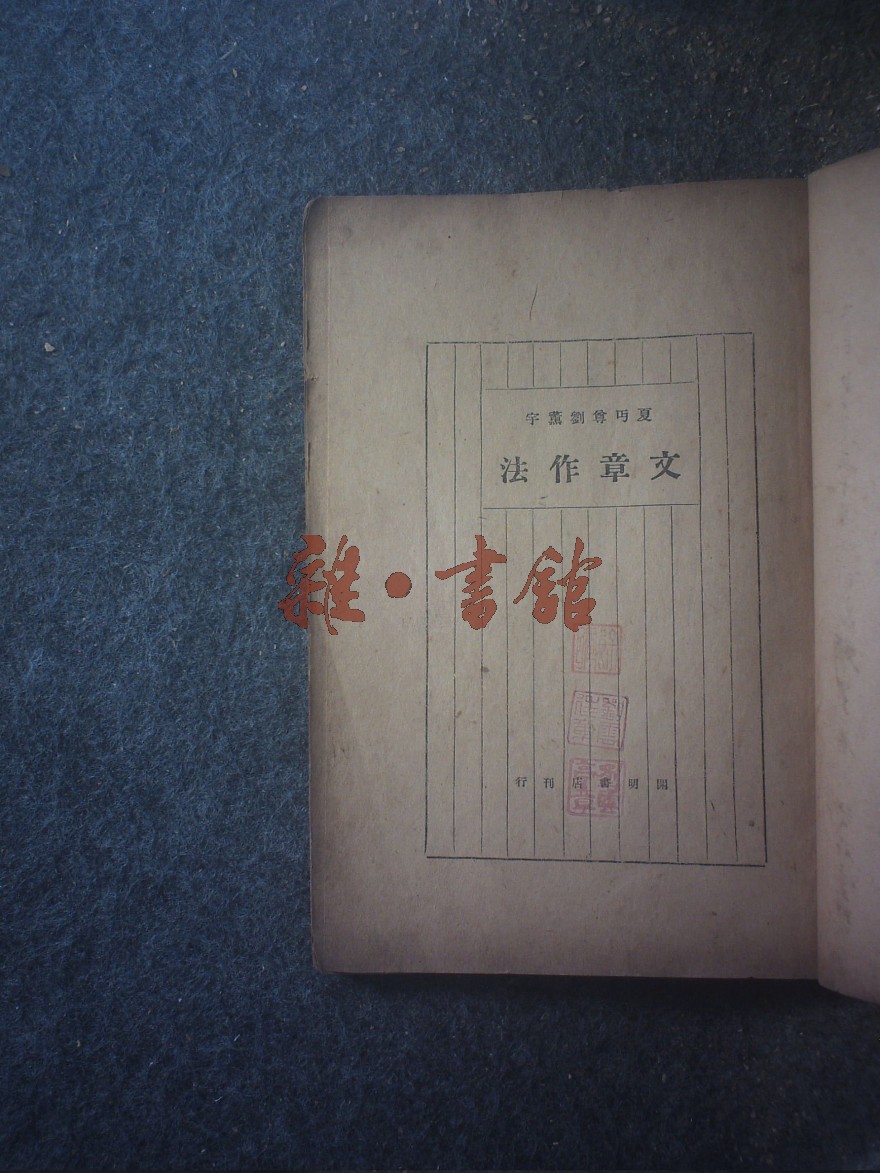 夏丏尊劉薰宇
文章作法
雜·書館
開明書店刊行